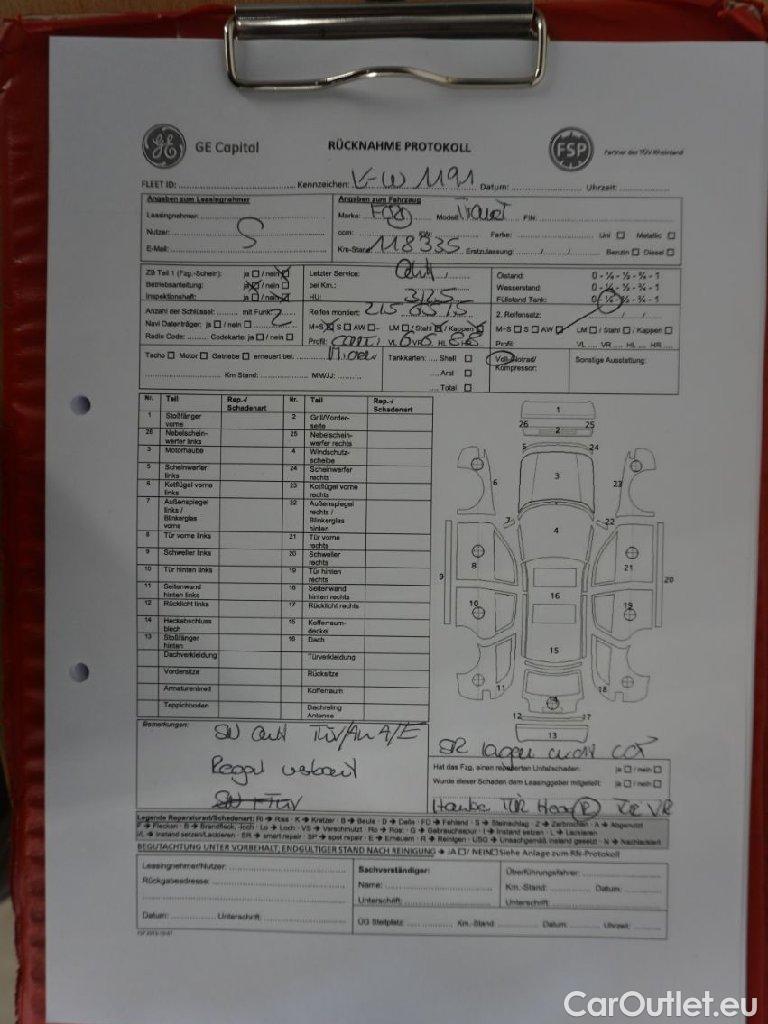 GE Capital RÜCKNAHME PROTOKOLL FSP Partner des TÜV Rheinland
FLEET ID: Kennzeichen: V-W 1191 Datum: Uhrzeit:
Angaben zum Leasingnehmer Angaben zum Fahrzeug
Leasingnehmer: Marke: Ford Modell: FIN:
Nutzer: S ccm: KW: Farbe: Uni Metallic
E-Mail: Km-Stand: 118335 Erstzulassung: Benzin Diesel
ZB Teil 1 (Fzg.-Schein): ja / nein Letzter Service: Ölstand 0 - ¼ - ½ - ¾ - 1
Betriebsanleitung: ja / nein bei Km.: Wasserstand 0 - ¼ - ½ - ¾ - 1
Inspektionsheft: ja / nein HU: 3/25 Füllstand Tank: 0 - ¼ - ½ - ¾ - 1
Anzahl der Schlüssel: mit Funk: 2 Reifen montiert: 215 65 15 2. Reifensatz:
Navi Datenträger: ja / nein M+S S AW LM / Stahl / Kappen M-S S AW LM / Stahl / Kappen
Radio Code: Codekarte: ja / nein Profil: VL 6 VR 6 HL 8 8 Profil: VL VR HL HR
Tacho Motor Getriebe erneuert bei: Tankkarten: Shell Voll-/Notrad/ Sonstige Ausstattung:
Km Stand: MWJJ: Aral Kompressor:
Total
Nr. Teil Rep.-/ Schadenart Nr. Teil Rep.-/ Schadenart
1 Stoßfänger vorne 2 Grill/Vorder-seite
26 Nebelschein-werfer links 25 Nebelschein-werfer rechts
3 Motorhaube 4 Windschutz-scheibe
5 Scheinwerfer links 24 Scheinwerfer rechts
6 Kotflügel vorne links 23 Kotflügel vorne rechts
7 Außenspiegel links / Blinkerglas vorne 22 Außenspiegel rechts / Blinkerglas hinten
8 Tür vorne links 21 Tür vorne rechts
9 Schweller links 20 Schweller rechts
10 Tür hinten links 19 Tür hinten rechts
11 Seitenwand hinten links 18 Seitenwand hinten rechts
12 Rücklicht links 17 Rücklicht rechts
14 Heckabschluss blech 15 Kofferraum-deckel
13 Stoßfänger hinten 16 Dach
Dachverkleidung Türverkleidung
Vordersitze Rücksitze
Armaturenbrett Kofferraum
Teppichboden Dachreling Antenne
1
26 25
2
5 24
6 3 23
7 22
4
8 21
9 20
10 16 19
15
11 18
12 17
13
Bemerkungen:
Regal verbaut
Hat das Fzg. einen reparierten Unfallschaden: ja / nein
Wurde dieser Schaden dem Leasinggeber mitgeteilt: ja / nein
Legende Reparatur/Schadenart: Ri → Riss - K → Kratzer - B → Beule - D → Delle - FD → Fehlend - S → Steinschlag - Z → Zerbrochen - A → Abgenutzt
BEGUTACHTUNG UNTER VORBEHALT, ENDGÜLTIGER STAND NACH REINIGUNG → JA / NEIN Siehe Anlage zum RN-Protokoll
Leasingnehmer/Nutzer: Sachverständiger: Überführungsfahrer:
Rückgabeadresse: Name: Km.-Stand: Datum:
Unterschrift: Unterschrift:
Datum: Unterschrift: ÜG Stellplatz: Km.-Stand Datum: Uhrzeit:
CarOutlet.eu